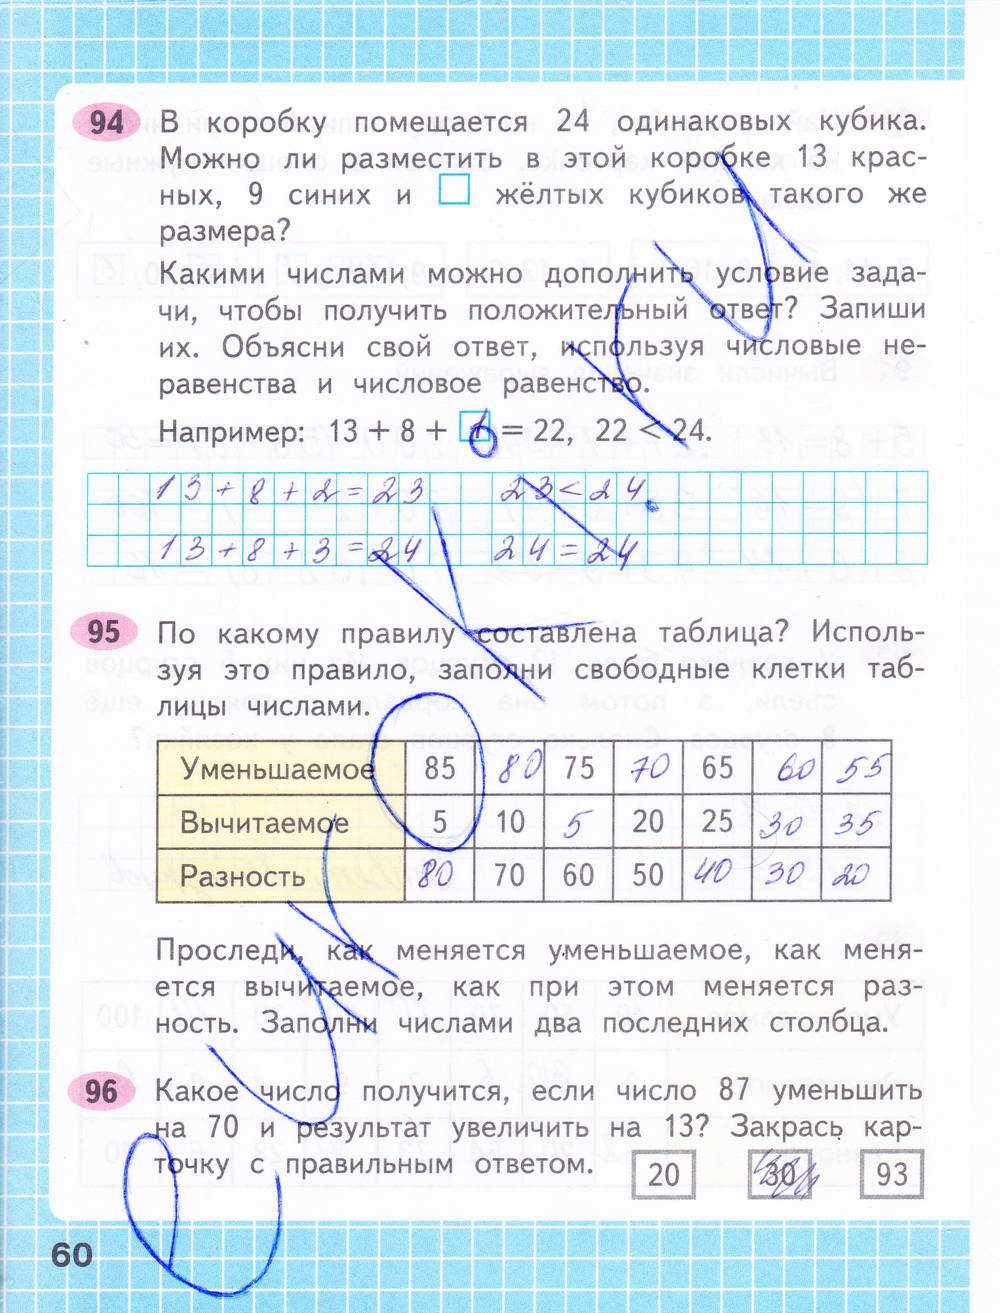 94 В коробку помещается 24 одинаковых кубика.
Можно ли разместить в этой коробке 13 крас-
ных, 9 синих и □ жёлтых кубиков такого же
размера?
Какими числами можно дополнить условие зада-
чи, чтобы получить положительный ответ? Запиши
их. Объясни свой ответ, используя числовые не-
равенства и числовое равенство.
Например: 13 + 8 + 1 = 22, 22 < 24.
13 + 8 + 2 = 23 23 < 24.
13 + 8 + 3 = 24 24 = 24
95 По какому правилу составлена таблица? Исполь-
зуя это правило, заполни свободные клетки таб-
лицы числами.
Уменьшаемое 85 80 75 70 65 60 55
Вычитаемое 5 10 5 20 25 30 35
Разность 80 70 60 50 40 30 20
Проследи, как меняется уменьшаемое, как меня-
ется вычитаемое, как при этом меняется раз-
ность. Заполни числами два последних столбца.
96 Какое число получится, если число 87 уменьшить
на 70 и результат увеличить на 13? Закрась кар-
точку с правильным ответом. 20 30 93
60
eurokki.ru